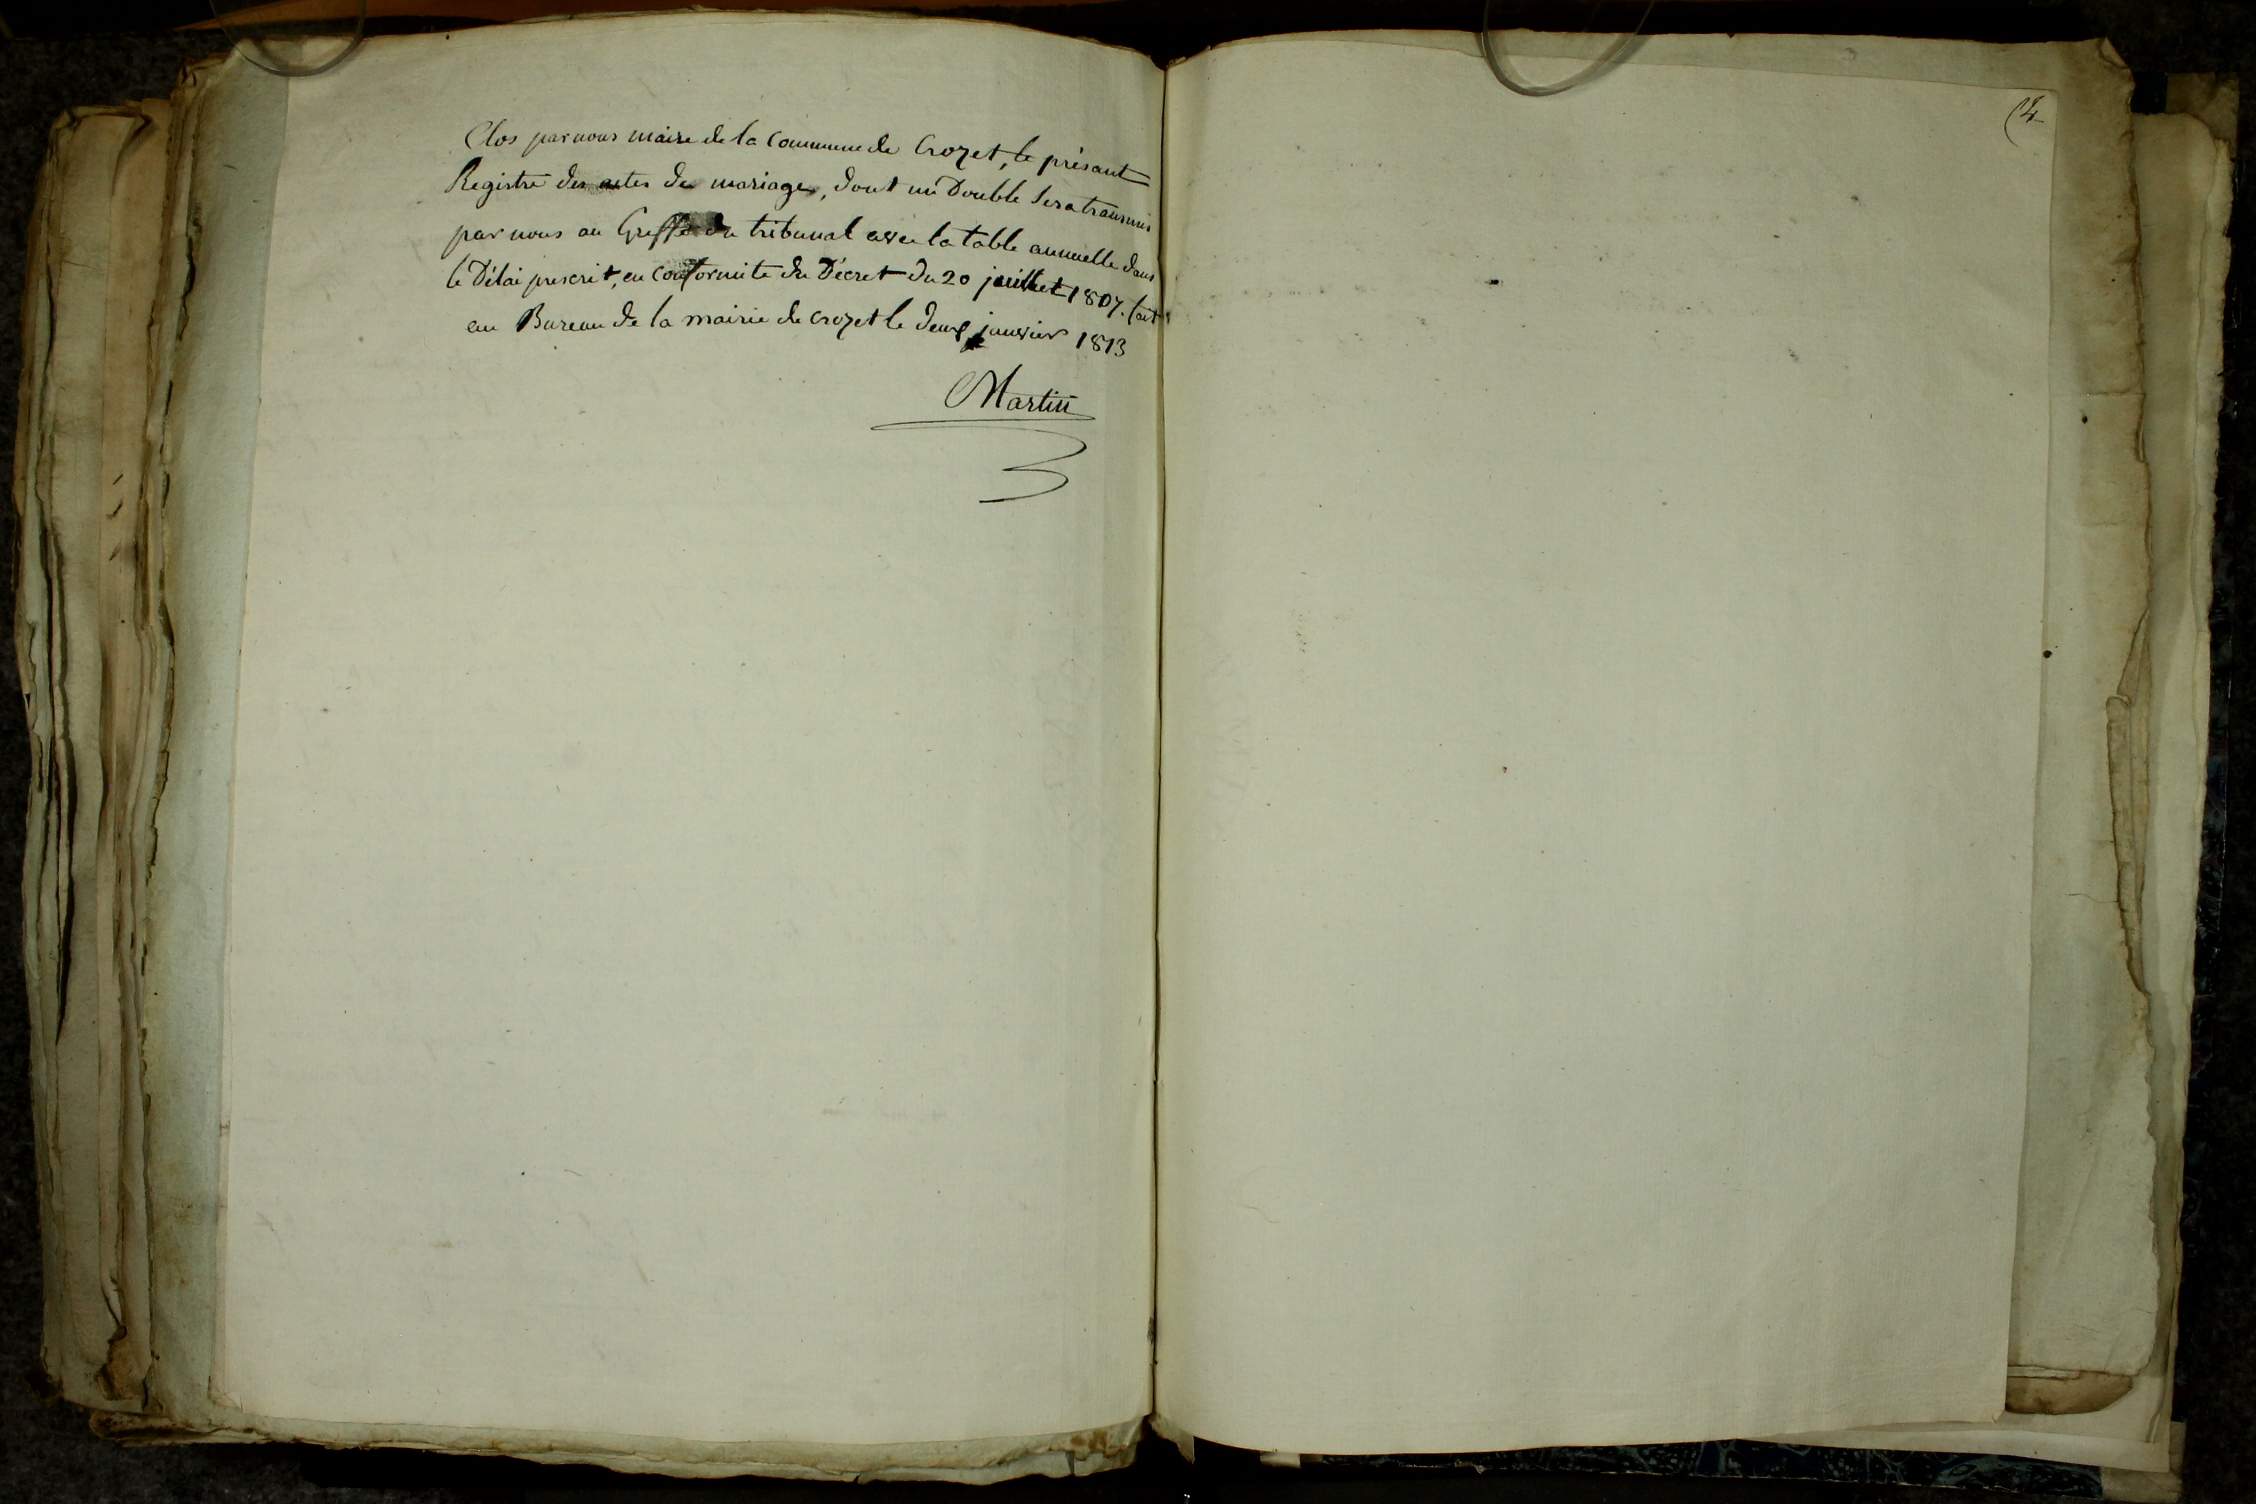 Clos par nous maire de la Commune de Crozet, le présant
Registre des actes de mariages, dont un Double sera transmis
par nous au Greffe du tribunal avec la table annuelle dans
le Délai prescrit, en conformite du Décret du 20 juillet 1807. fait
au Bureau de la mairie de Crozet le deux janvier 1813
Martin
4